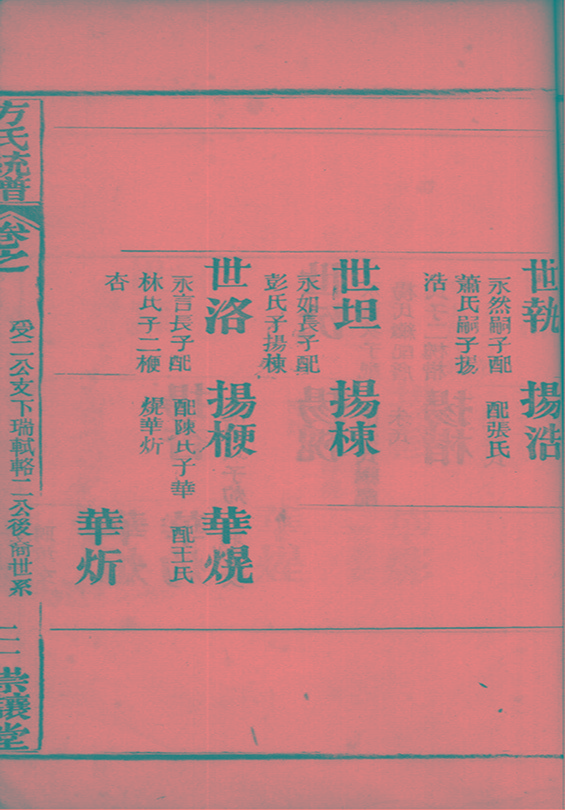 世執
永然嗣子配
蕭氏嗣子揚
浩
揚浩
配張氏
世坦
永如長子配
彭氏子揚棟
揚棟
世洛
永言長子配
林氏子二楩
杏
揚楩
配陳氏子華
熀華炘
華熀
配王氏
華炘
方氏統譜
卷之
受二公支下瑞軾輅二公後裔世系
二
崇讓堂